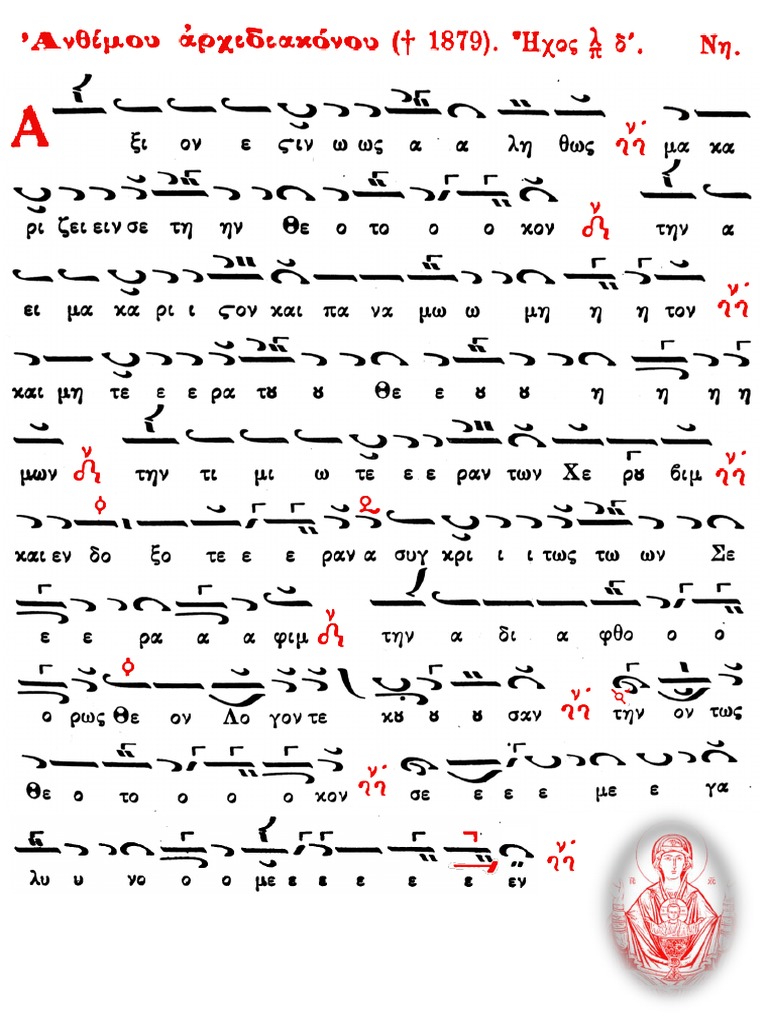 Ἀνθίμου ἀρχιδιακόνου († 1879). Ἦχος λ/π δ΄. Νη.
Α ξι ον ε ϛιν ω ως α α λη θως μα κα
ρι ζει ειν σε τη ην Θε ο το ο ο κον την α
ει μα κα ρι ι ϛον και πα να μω ω μη η η τον
και μη τε ε ε ρα τȣ ȣ Θε ε ȣ ȣ η η η η
μων την τι μι ω τε ε ε ραν των Χε ρȣ βιμ
και εν δο ξο τε ε ε ραν α συγ κρι ι ι τως τω ων Σε
ε ε ρα α α φιμ την α δι α φθο ο ο
ο ρως Θε ον Λο γον τε κȣ ȣ ȣ σαν την ον τως
Θε ο το ο ο ο κον σε ε ε ε με ε γα
λυ υ νο ο ο με ε ε ε ε ε εν